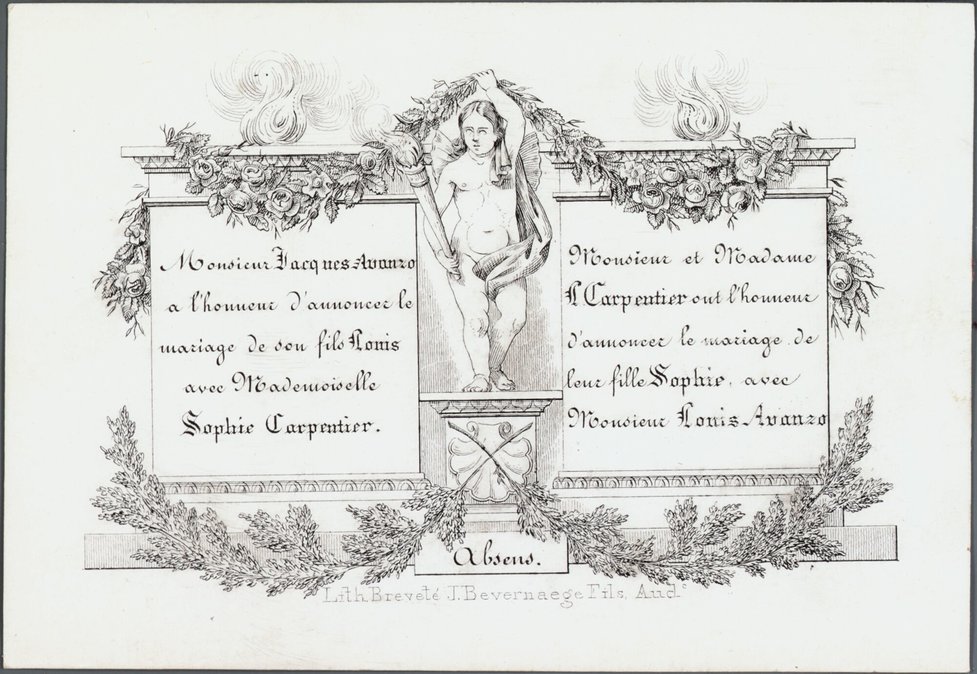 Monsieur Jacques Avanzo
a l'honneur d'annoncer le
mariage de son fils Louis
avec Mademoiselle
Sophie Carpentier.
Monsieur et Madame
Carpentier ont l'honneur
d'annoncer le mariage de
leur fille Sophie, avec
Monsieur Louis Avanzo
Absens.
Lith. Breveté J. Bevernaege Fils, Aud.e